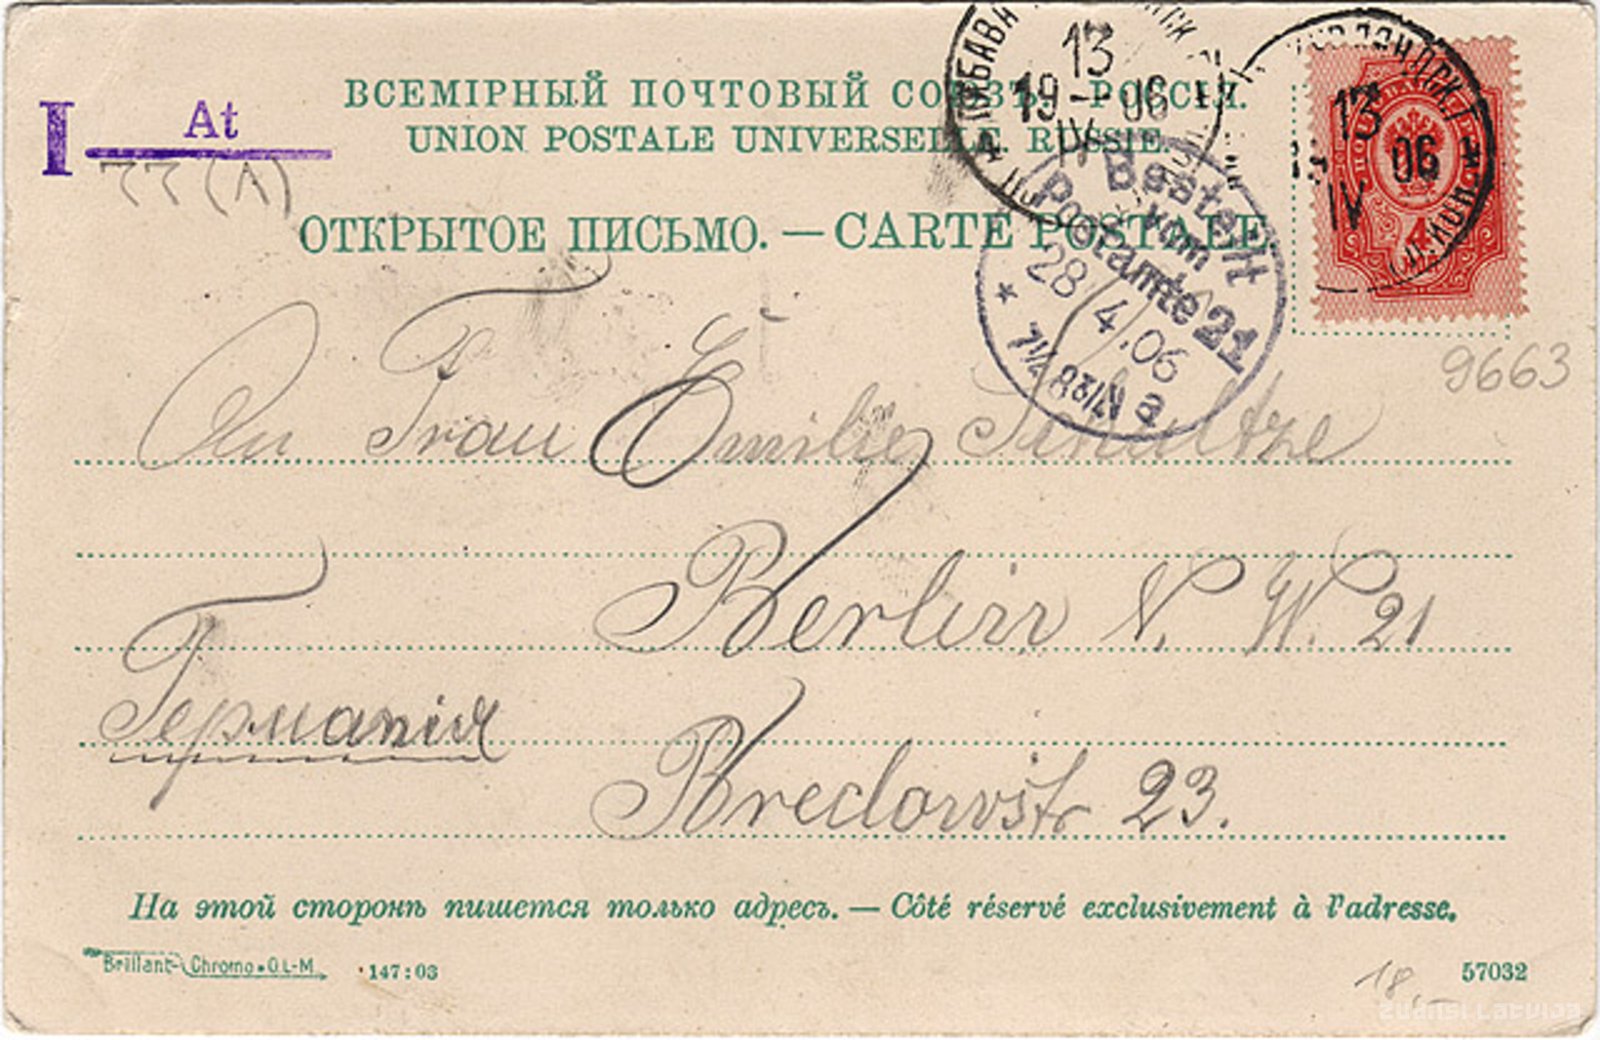 ВСЕМІРНЫЙ ПОЧТОВЫЙ СОЮЗЪ. РОССІЯ.
UNION POSTALE UNIVERSELLE. RUSSIE.
ОТКРЫТОЕ ПИСЬМО. — CARTE POSTALE
I At
77 (A)
13
19 — 06
IV
13
06
IV
Bestellt
vom
Postamte 21
28 4.06
7¼ 8¾ N a
9663
An Frau Emilie Schultze
Berlin N. W. 21
Германія
Bredowstr 23.
На этой сторонѣ пишется только адресъ. — Côté réservé exclusivement à l'adresse.
Brillant-Chromo O.L-M. 147:03
18,—
57032
zudusi latvija